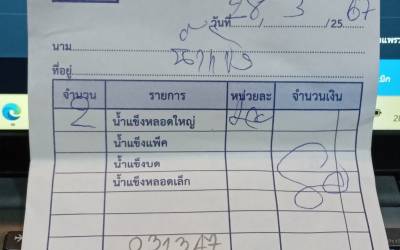 วันที่ 28, 3 /25 67
นาม
ที่อยู่
จำนวน รายการ หน่วยละ จำนวนเงิน
2 น้ำแข็งหลอดใหญ่
น้ำแข็งแพ็ค
น้ำแข็งบด
น้ำแข็งหลอดเล็ก
031347